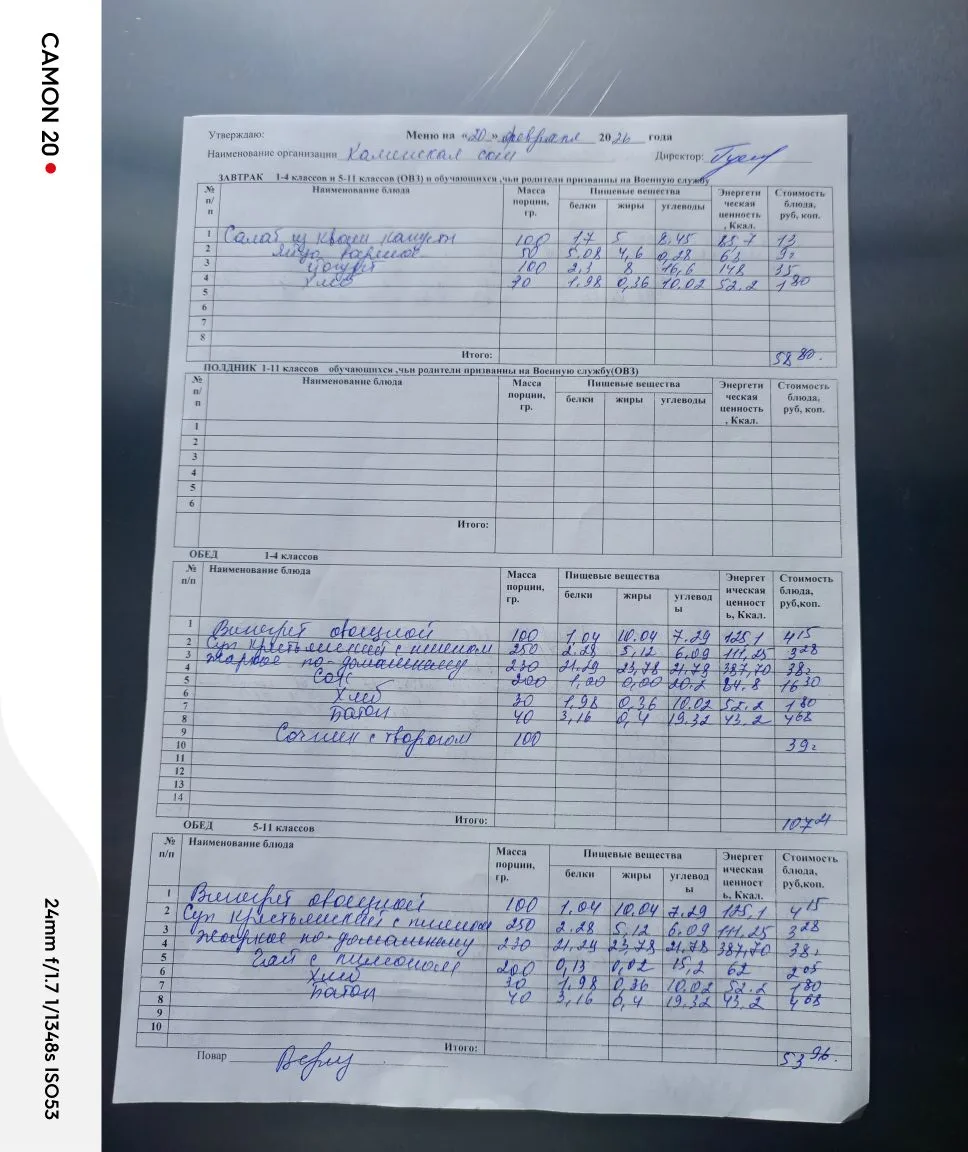 CAMON 20
24mm f/1.7 1/1348s ISO53
Утверждаю: Меню на «20» февраля 2026 года
Наименование организации Каменская сош Директор:
ЗАВТРАК 1-4 классов и 5-11 классов (ОВЗ) и обучающихся ,чьи родители призванны на Военную службу
№ п/п Наименование блюда Масса порции, гр. Пищевые вещества белки жиры углеводы Энергетическая ценность, Ккал. Стоимость блюда, руб, коп.
1 Салат из квашен капусты 100 1,7 5 8,45 85,7 13
2 Яйцо вареное 50 5.08 4,6 0,28 63 9=
3 Йогурт 100 2,3 8 16,6 148 35
4 Хлеб 1,98 0,36 10.02 52.2 1 80
5
6
7
8
Итого: 58 80.
ПОЛДНИК 1-11 классов обучающихся ,чьи родители призванны на Военную службу(ОВЗ)
№ п/п Наименование блюда Масса порции, гр. Пищевые вещества белки жиры углеводы Энергетическая ценность, Ккал. Стоимость блюда, руб, коп.
1
2
3
4
5
6
Итого:
ОБЕД 1-4 классов
№ п/п Наименование блюда Масса порции, гр. Пищевые вещества белки жиры углеводы Энергетическая ценность, Ккал. Стоимость блюда, руб,коп.
1 Винегрет овощной 100 1,04 10,04 7.29 125,1 4 15
2 Суп крестьянский с пшеном 250 2.28 5,12 6,09 111,25 3 28
3 Жаркое по-домашнему 230 21.29 23,78 21,79 387,70 38=
4
5 Сок 200 1,00 0,00 20,2 84.8 16 30
6 Хлеб 30 1,98 0,36 10.02 52.2 1 80
7 Батон 40 3,16 0,4 19,32 43.2 4 68
8
9 Сочник с творогом 100 39=
10
11
12
13
14
Итого: 107 21
ОБЕД 5-11 классов
№ п/п Наименование блюда Масса порции, гр. Пищевые вещества белки жиры углеводы Энергетическая ценность, Ккал. Стоимость блюда, руб,коп.
1 Винегрет овощной 100 1,04 10,04 7.29 125,1 4 15
2 Суп крестьянский с пшеном 250 2.28 5,12 6.09 111.25 3 28
3 Жаркое по-домашнему 230 21,24 23,78 21,78 387,70 38=
4
5 Чай с лимоном 200 0,13 0,02 15,2 62 2 05
6 Хлеб 30 1,98 0,36 10.02 52.2 1 80
7 Батон 40 3,16 0,4 19,32 43,2 4 68
8
9
10
Итого: 53 96.
Повар